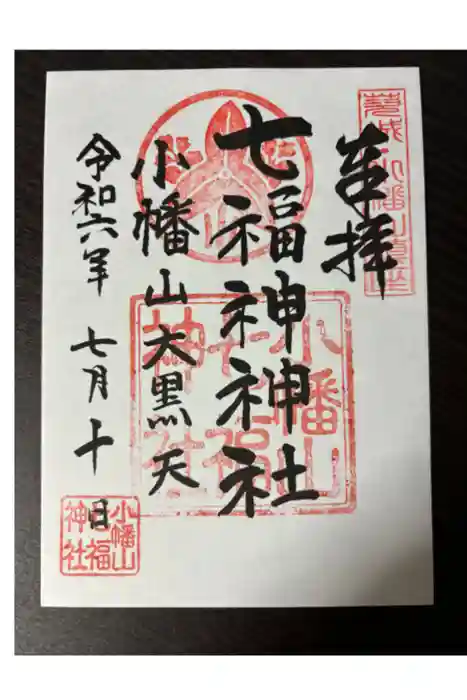 奉拝
七福神神社
小幡山大黒天
令和六年 七月十日
小幡山
七福
神社
小幡山
七福
神社